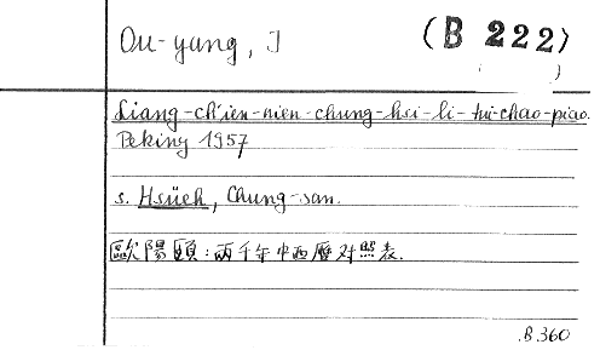 Ou-yang, I
(B 222)
Liang-ch'ien-nien-chung-hsi-li-tui-chao-piao.
Peking 1957
s. Hsüeh, Chung-san.
歐陽頤:两千年中西曆对照表.
.B.360